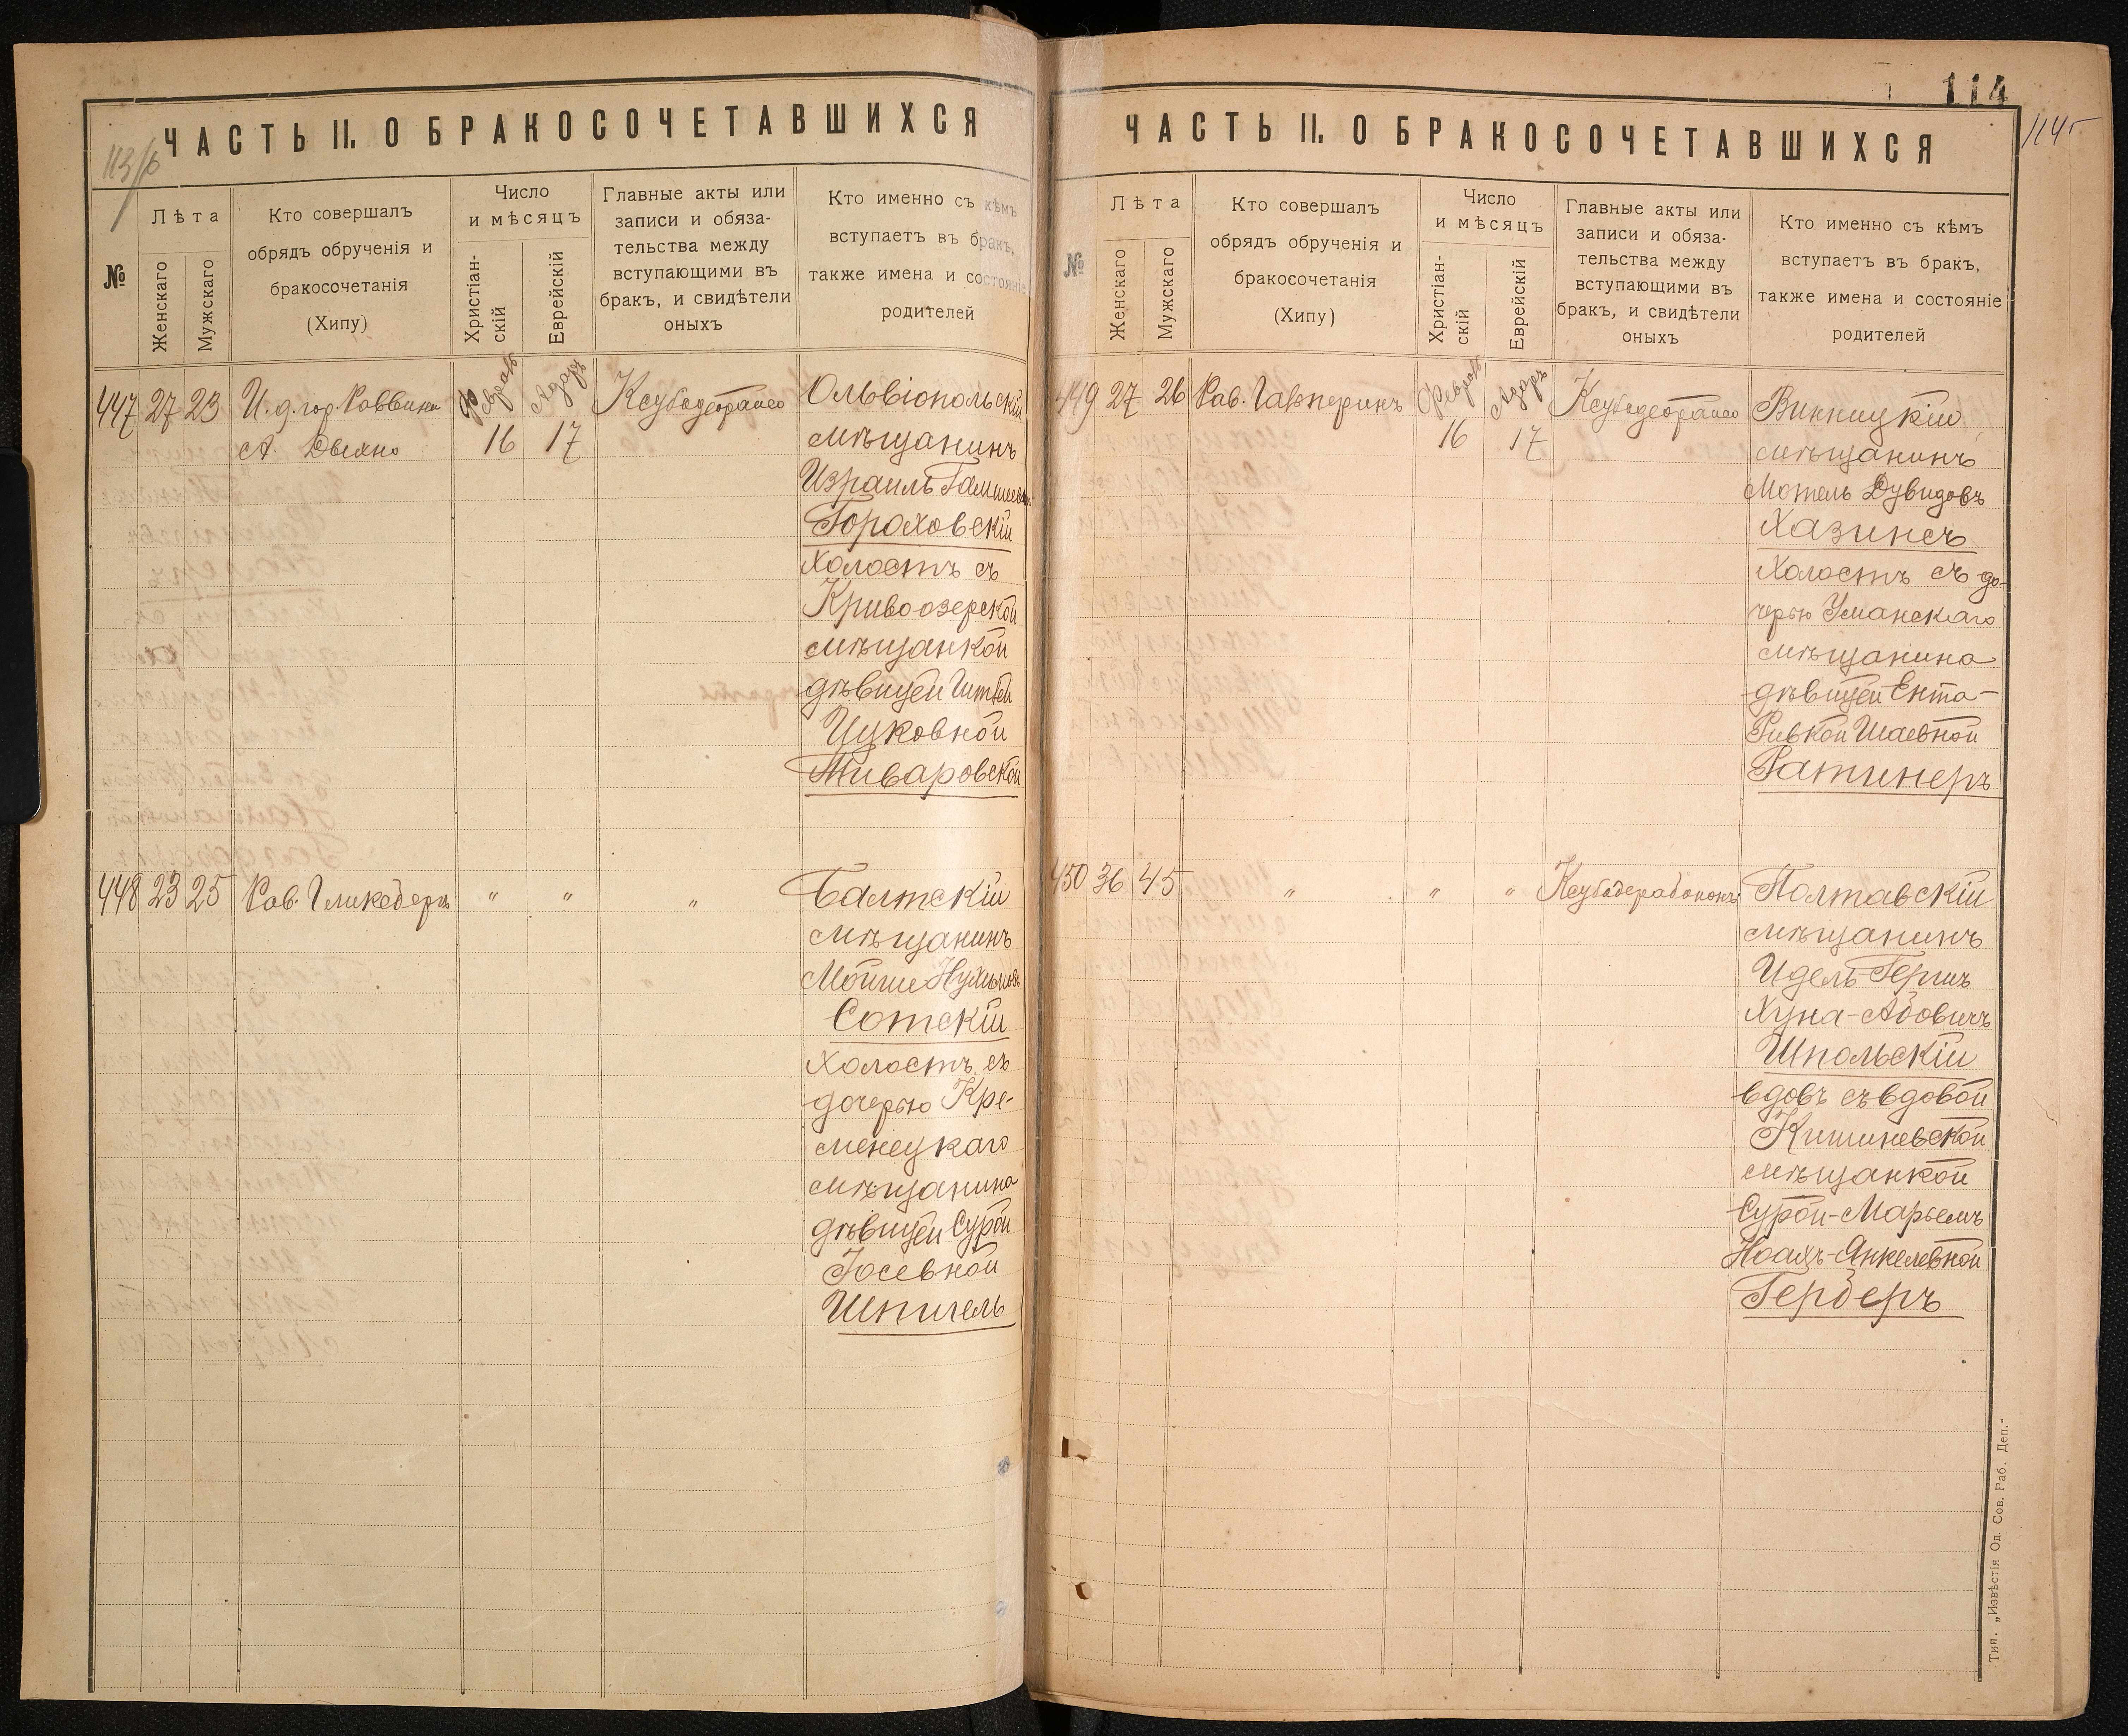 ЧАСТЬ II. О БРАКОСОЧЕТАВШИХСЯ
№
Лѣта
Женскаго
Мужскаго
Кто совершалъ
обрядъ обрученія и
бракосочетанія
(Хипу)
Число
и мѣсяцъ
Христіан-
скій
Еврейскій
Главные акты или
записи и обяза-
тельства между
вступающими въ
бракъ, и свидѣтели
оныхъ
Кто именно съ кѣмъ
вступаетъ въ бракъ,
также имена и состояніе
родителей
447 27 23 И. д. гор. Раввина
А.
Февраль 16
Адаръ 17
Ольвіопольскій
мѣщанинъ
Израиль
Гороховскій
холостъ съ
Кривоозерской
мѣщанкой
дѣвицей
Цуковной
Тиваровской
448 23 25 Рав. " " "
Балтскій
мѣщанинъ
Мойше
Сотскій
холостъ съ
дочерью Кре-
менецкаго
мѣщанина
дѣвицей Сурой
Іосевной
Шпигель
114
114г
ЧАСТЬ II. О БРАКОСОЧЕТАВШИХСЯ
№
Лѣта
Женскаго
Мужскаго
Кто совершалъ
обрядъ обрученія и
бракосочетанія
(Хипу)
Число
и мѣсяцъ
Христіан-
скій
Еврейскій
Главные акты или
записи и обяза-
тельства между
вступающими въ
бракъ, и свидѣтели
оныхъ
Кто именно съ кѣмъ
вступаетъ въ бракъ,
также имена и состояніе
родителей
449 27 26 Рав. Гальперинъ
Февраль 16
Адаръ 17
Винницкій
мѣщанинъ
Мотель Дувидовъ
Хазинсъ
холостъ съ до-
черью Уманскаго
мѣщанина
дѣвицей Ента-
Ривкой Шаевной
Ратинеръ
450 36 45 " " "
Полтавскій
мѣщанинъ
Идель-Гершъ
Хуна-Абовичъ
Шпольскій
вдовъ съ вдовой
Кишиневской
мѣщанкой
Сурой-Марьемъ
Янкелевной
Герберъ
Тип. „Извѣстія Од. Сов. Раб. Деп."